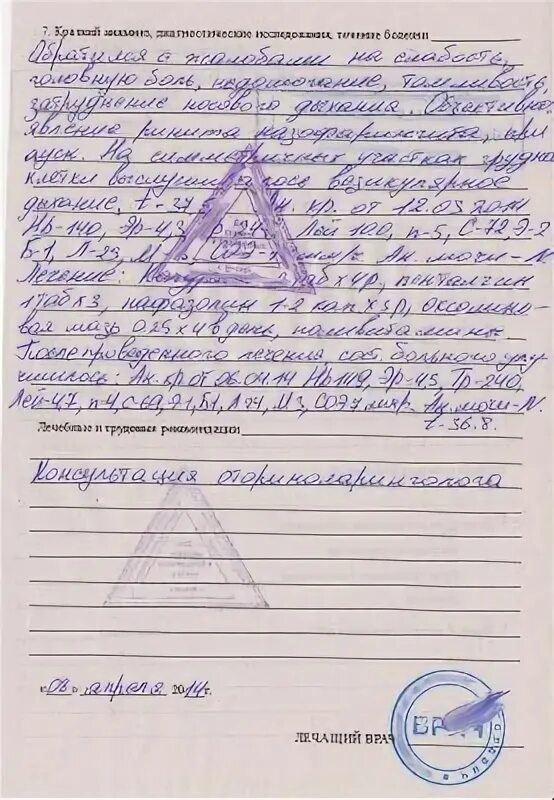 7. Краткий анамнез, диагностические исследования, течение болезни
Обратился с жалобами на слабость,
головную боль, недомогание, томливость,
затруднение носового дыхания. Объективно:
явление ринита назофарингита,
дуск. На симметричных участках грудной
клетки выслушивалось везикулярное
дыхание, t-37, кр. от 12.03.2014
Нр-140, Эр-4,3, Лей 100, п-5, С-72, Э-2
Б-1, Л-23, М СОЭ-1 мм/ч Ан. мочи-N
Лечение: таб х 4р, пенталгин
1 таб х 3, нафазолин 1-2 кап х 3р, оксолино-
вая мазь 0.25 х 4 в день, поливитамины.
После проведенного лечения, сост. больного улу-
чшилось: Ан. кр от 06.04.14 Нр 119, Эр-4,5, Тр-240,
Лей-4,7, п-4, С 69, Э1, Б1, Л 24, М3, СОЭ 7 мм/ч. Ан. мочи-N.
t-36.8.
Лечебные и трудовые рекомендации
Консультация оториноларинголога
« 08 » апреля 2014 г.
ЛЕЧАЩИЙ ВРАЧ
ВРАЧ